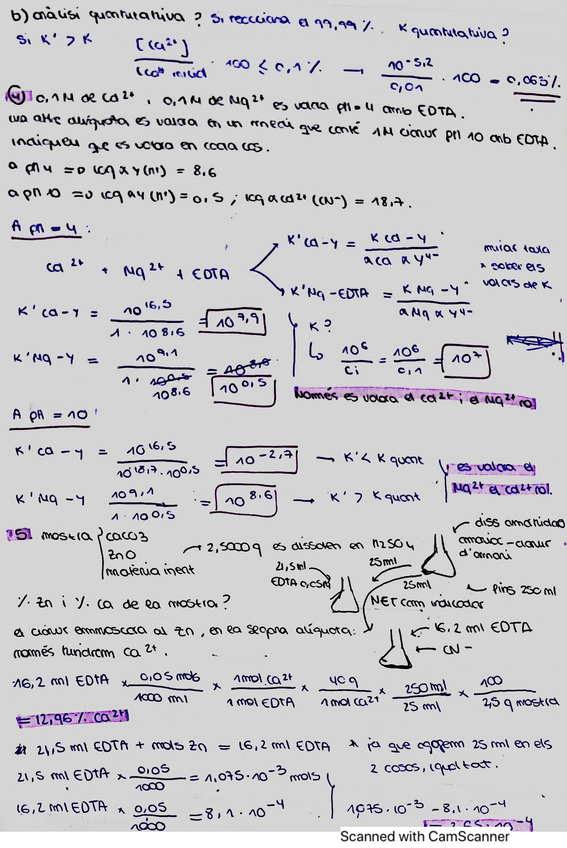 b) anàlisi quantitativa? Si reacciona el 99,99%. K quantitativa?
Si K' > K [Ca²⁺] / [Ca²⁺ inicial] · 100 ≤ 0,1% → 10^-5,2 / 0,01 · 100 = 0,063%
④ 0,1M de Cd²⁺ i 0,1M de Mg²⁺ es valora pH=4 amb EDTA.
una altra alíquota es valora en un medi que conté 1M cianur pH 10 amb EDTA.
indiqueu què es valora en cada cas.
a pH 4 => log αY(H⁺) = 8,6
a pH 10 => log αY(H⁺) = 0,5 ; log αCd²⁺(CN⁻) = 18,7.
A pH = 4:
Cd²⁺ + Mg²⁺ + EDTA
K'Cd-Y = K Cd-Y / αCd αY⁴⁻
K'Mg-EDTA = K Mg-Y / αMg αY⁴⁻
mirar taula x saber els valors de K
K'Cd-Y = 10^16,5 / 1 · 10^8,6 = 10^7,9
K'Mg-Y = 10^9,1 / 1 · 10^8,6 = 10^0,5
K?
↳ 10⁶ / Ci = 10⁶ / 0,1 = 10⁷
Només es valora el Cd²⁺ i el Mg²⁺ no.
A pH = 10
K'Cd-Y = 10^16,5 / 10^18,7 · 10^0,5 = 10^-2,7 → K' < K quant
K'Mg-Y = 10^9,1 / 1 · 10^0,5 = 10^8,6 → K' > K quant
es valora el Mg²⁺ el Cd²⁺ no.
5 mostra { CaCO3
ZnO → 2,5000g es dissolen en H2SO4
matèria inert
diss amoniacal
amoníac-clorur d'amoni
25ml
21,5ml EDTA 0,05M
25ml
fins 250ml
NET com indicador
% Zn i % Ca de la mostra?
16,2 ml EDTA
CN⁻
el cianur emmascara al Zn, en la segona alíquota:
només tindrem Ca²⁺.
16,2 ml EDTA × 0,05 mols / 1000 ml × 1 mol Ca²⁺ / 1 mol EDTA × 40g / 1 mol Ca²⁺ × 250 ml / 25 ml × 100 / 2,5 g mostra
= 12,96% Ca²⁺
21,5 ml EDTA + mols Zn = 16,2 ml EDTA * ja que agafem 25 ml en els
2 casos, igual tot.
21,5 ml EDTA × 0,05 / 1000 = 1,075·10⁻³ mols
16,2 ml EDTA × 0,05 / 1000 = 8,1·10⁻⁴
1,075·10⁻³ - 8,1·10⁻⁴
= 2,65·10⁻⁴
Scanned with CamScanner